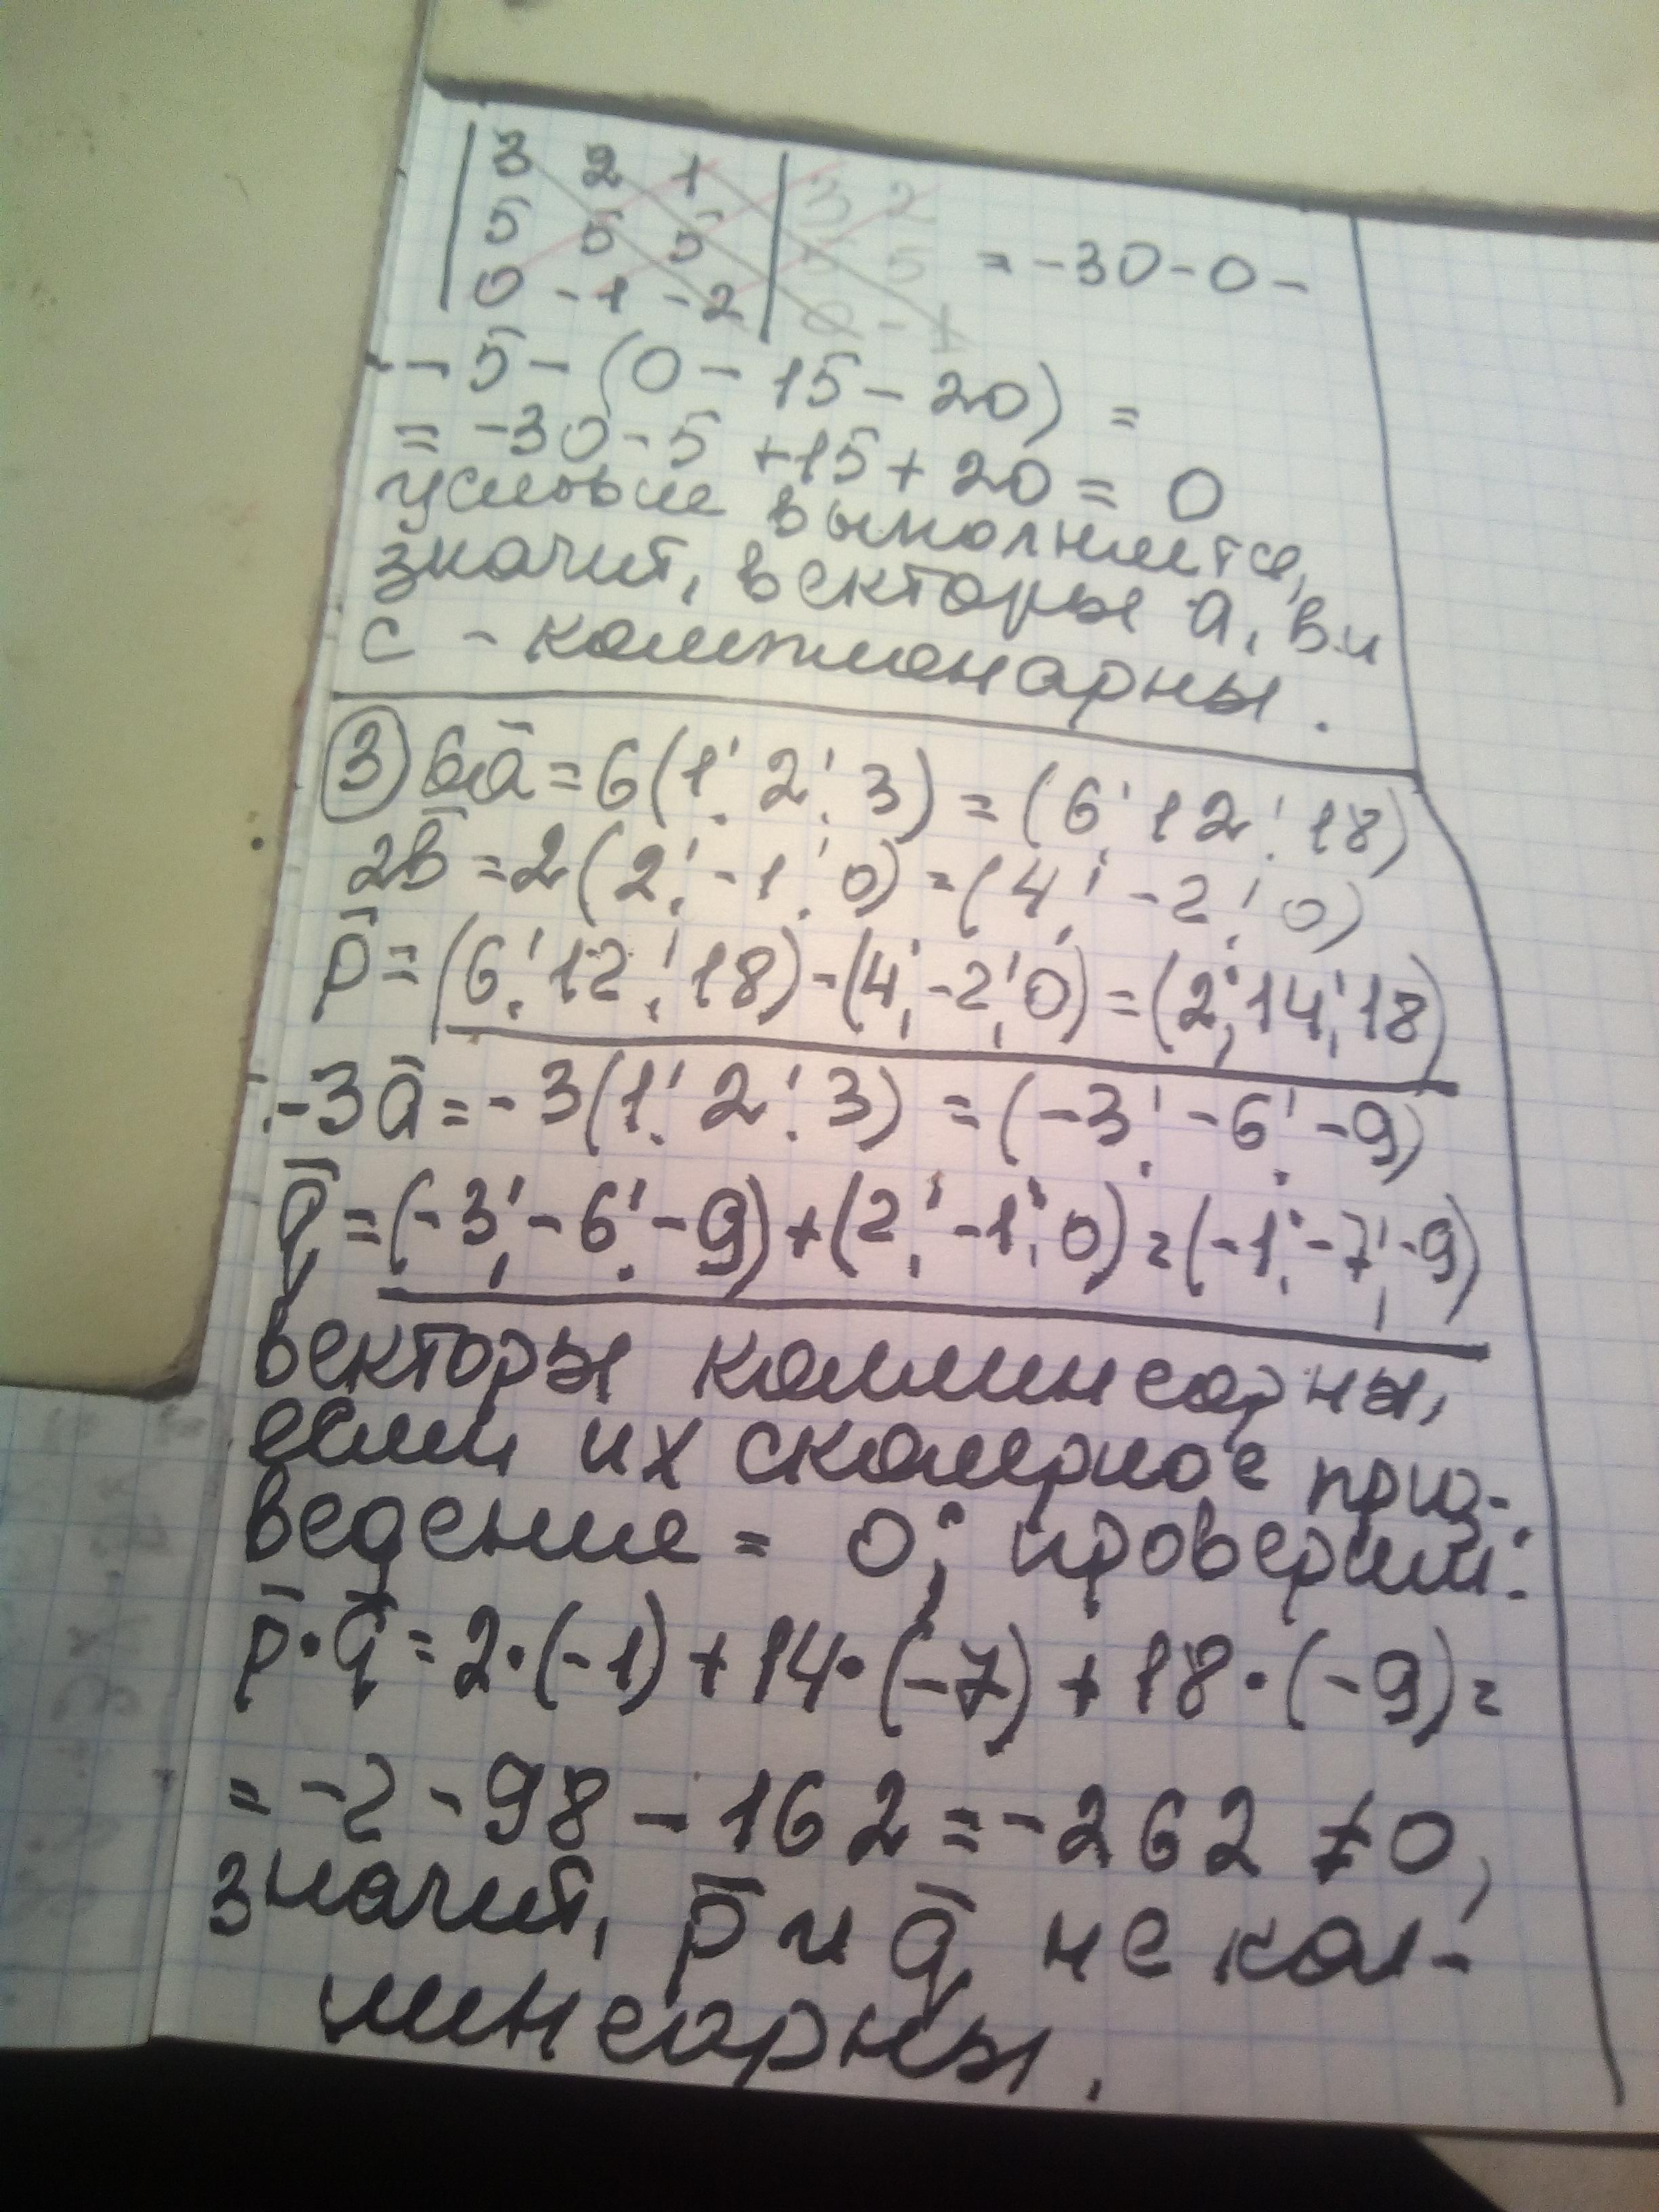 | 3 2 1 | 3 2
| 5 5 5 | 5 5 = -30-0-
| 0 -1 -2 | 0 -1
- 5 - (0 - 15 - 20) =
= -30-5 +15+20 = 0
условие выполняется,
значит, векторы a, b и
c - компланарны.
③ 6a̅ = 6(1; 2; 3) = (6; 12; 18)
2b̅ = 2(2; -1; 0) = (4; -2; 0)
p̅ = (6; 12; 18) - (4; -2; 0) = (2; 14; 18)
-3a̅ = -3(1; 2; 3) = (-3; -6; -9)
q̅ = (-3; -6; -9) + (2; -1; 0) = (-1; -7; -9)
векторы коллинеарны,
если их скалярное прои-
ведение = 0; проверим:
p̅·q̅ = 2·(-1) + 14·(-7) + 18·(-9) =
= -2 - 98 - 162 = -262 ≠ 0,
значит, p̅ и q̅ не кол-
линеарны.